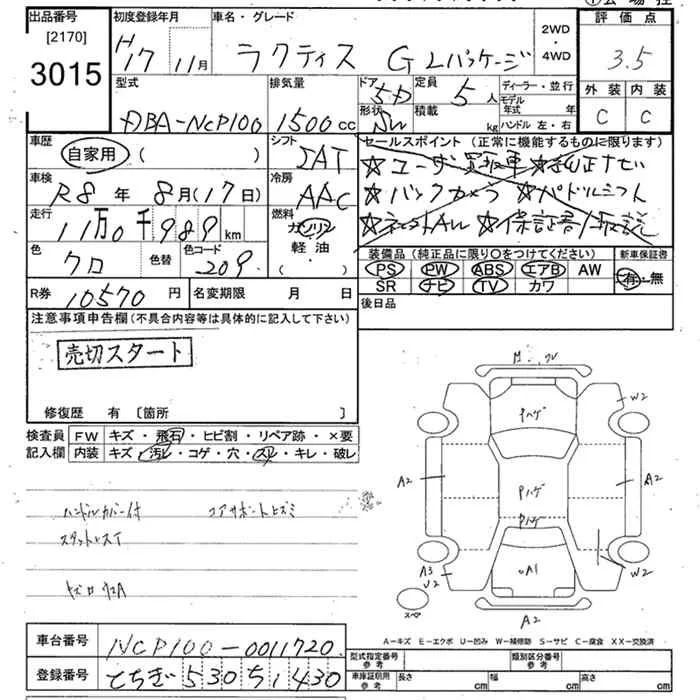 出品番号 初度登録年月 車名・グレード 2WD・4WD 評価点
[2170]
3015 H17 11月 ラクティス G Lパッケージ 3.5
型式 排気量 ドア 5D 定員 5人 ディーラー・並行 外装 内装
DBA-NCP100 1500cc 形状 SW 積載 kg モデル年式 年 ハンドル 左・右 C C
車歴 自家用 ( ) シフト IAT セールスポイント (正常に機能するものに限ります)
☆ユーザー買取車 ☆純正ナビ
車検 R8年 8月(17日) 冷房 AAC ☆バックカメラ ☆パドルシフト
走行 11万0千989km 燃料 ガソリン 軽油 ( ) ☆保証書/取説
色 クロ 色替 色コード 209 装備品 (純正品に限り○をつけてください) 新車保証書
PS PW ABS エアB AW 有・無
R券 10570円 名変期限 月 日 SR ナビ TV カワ
注意事項申告欄(不具合内容等は具体的に記入して下さい) 後日品
売切スタート
修復歴 有 〔箇所 〕
検査員 FW キズ・飛石・ヒビ割・リペア跡・×要
記入欄 内装 キズ・汚レ・コゲ・穴・スレ・キレ・破レ
ハンドルカバー付 コアサポートヒズミ
スタットレスイ
W2
Pハゲ
A2 Pハゲ A2
Pハゲ
A3 A1 W2
U2
スペア A2
A-キズ E-エクボ U-凹み W-補修跡 S-サビ C-腐食 XX-交換済
車台番号 NCP100-0011720 型式指定番号 参考 類別区分番号 参考
登録番号 とちぎ 530 ち 1430 車庫証明用 参考 長さ cm 幅 cm 高さ cm